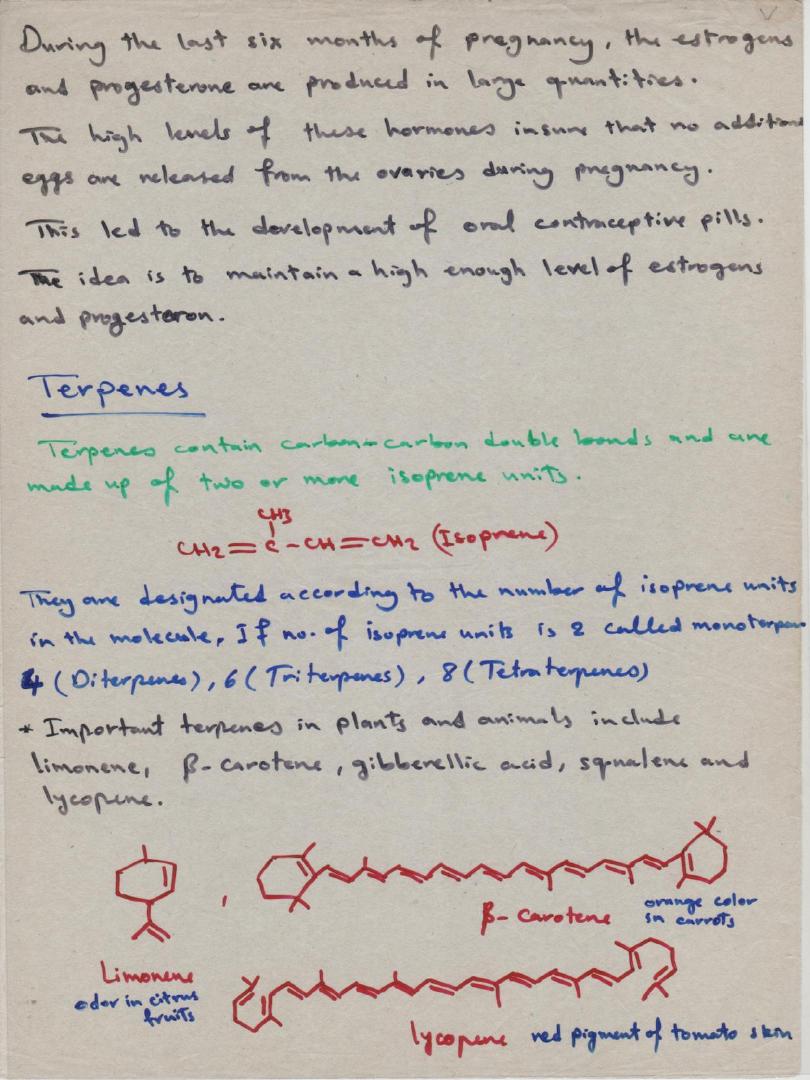 During the last six months of pregnancy, the estrogens
and progesterone are produced in large quantities.
The high levels of these hormones insure that no addition
eggs are released from the ovaries during pregnancy.
This led to the development of oral contraceptive pills.
The idea is to maintain a high enough level of estrogens
and progesteron.
Terpenes
Terpenes contain carbon-carbon double bonds and are
made up of two or more isoprene units.
CH3
CH2=C-CH=CH2 (Isoprene)
They are designated according to the number of isoprene units
in the molecule, If no. of isoprene units is 2 called monoterpen
4 (Diterpenes), 6 (Triterpenes), 8 (Tetraterpenes)
* Important terpenes in plants and animals include
limonene, β-carotene, gibberellic acid, squalene and
lycopene.
,
β-carotene orange color
in carrots
Limonene
odor in citrus
fruits
lycopene red pigment of tomato skin